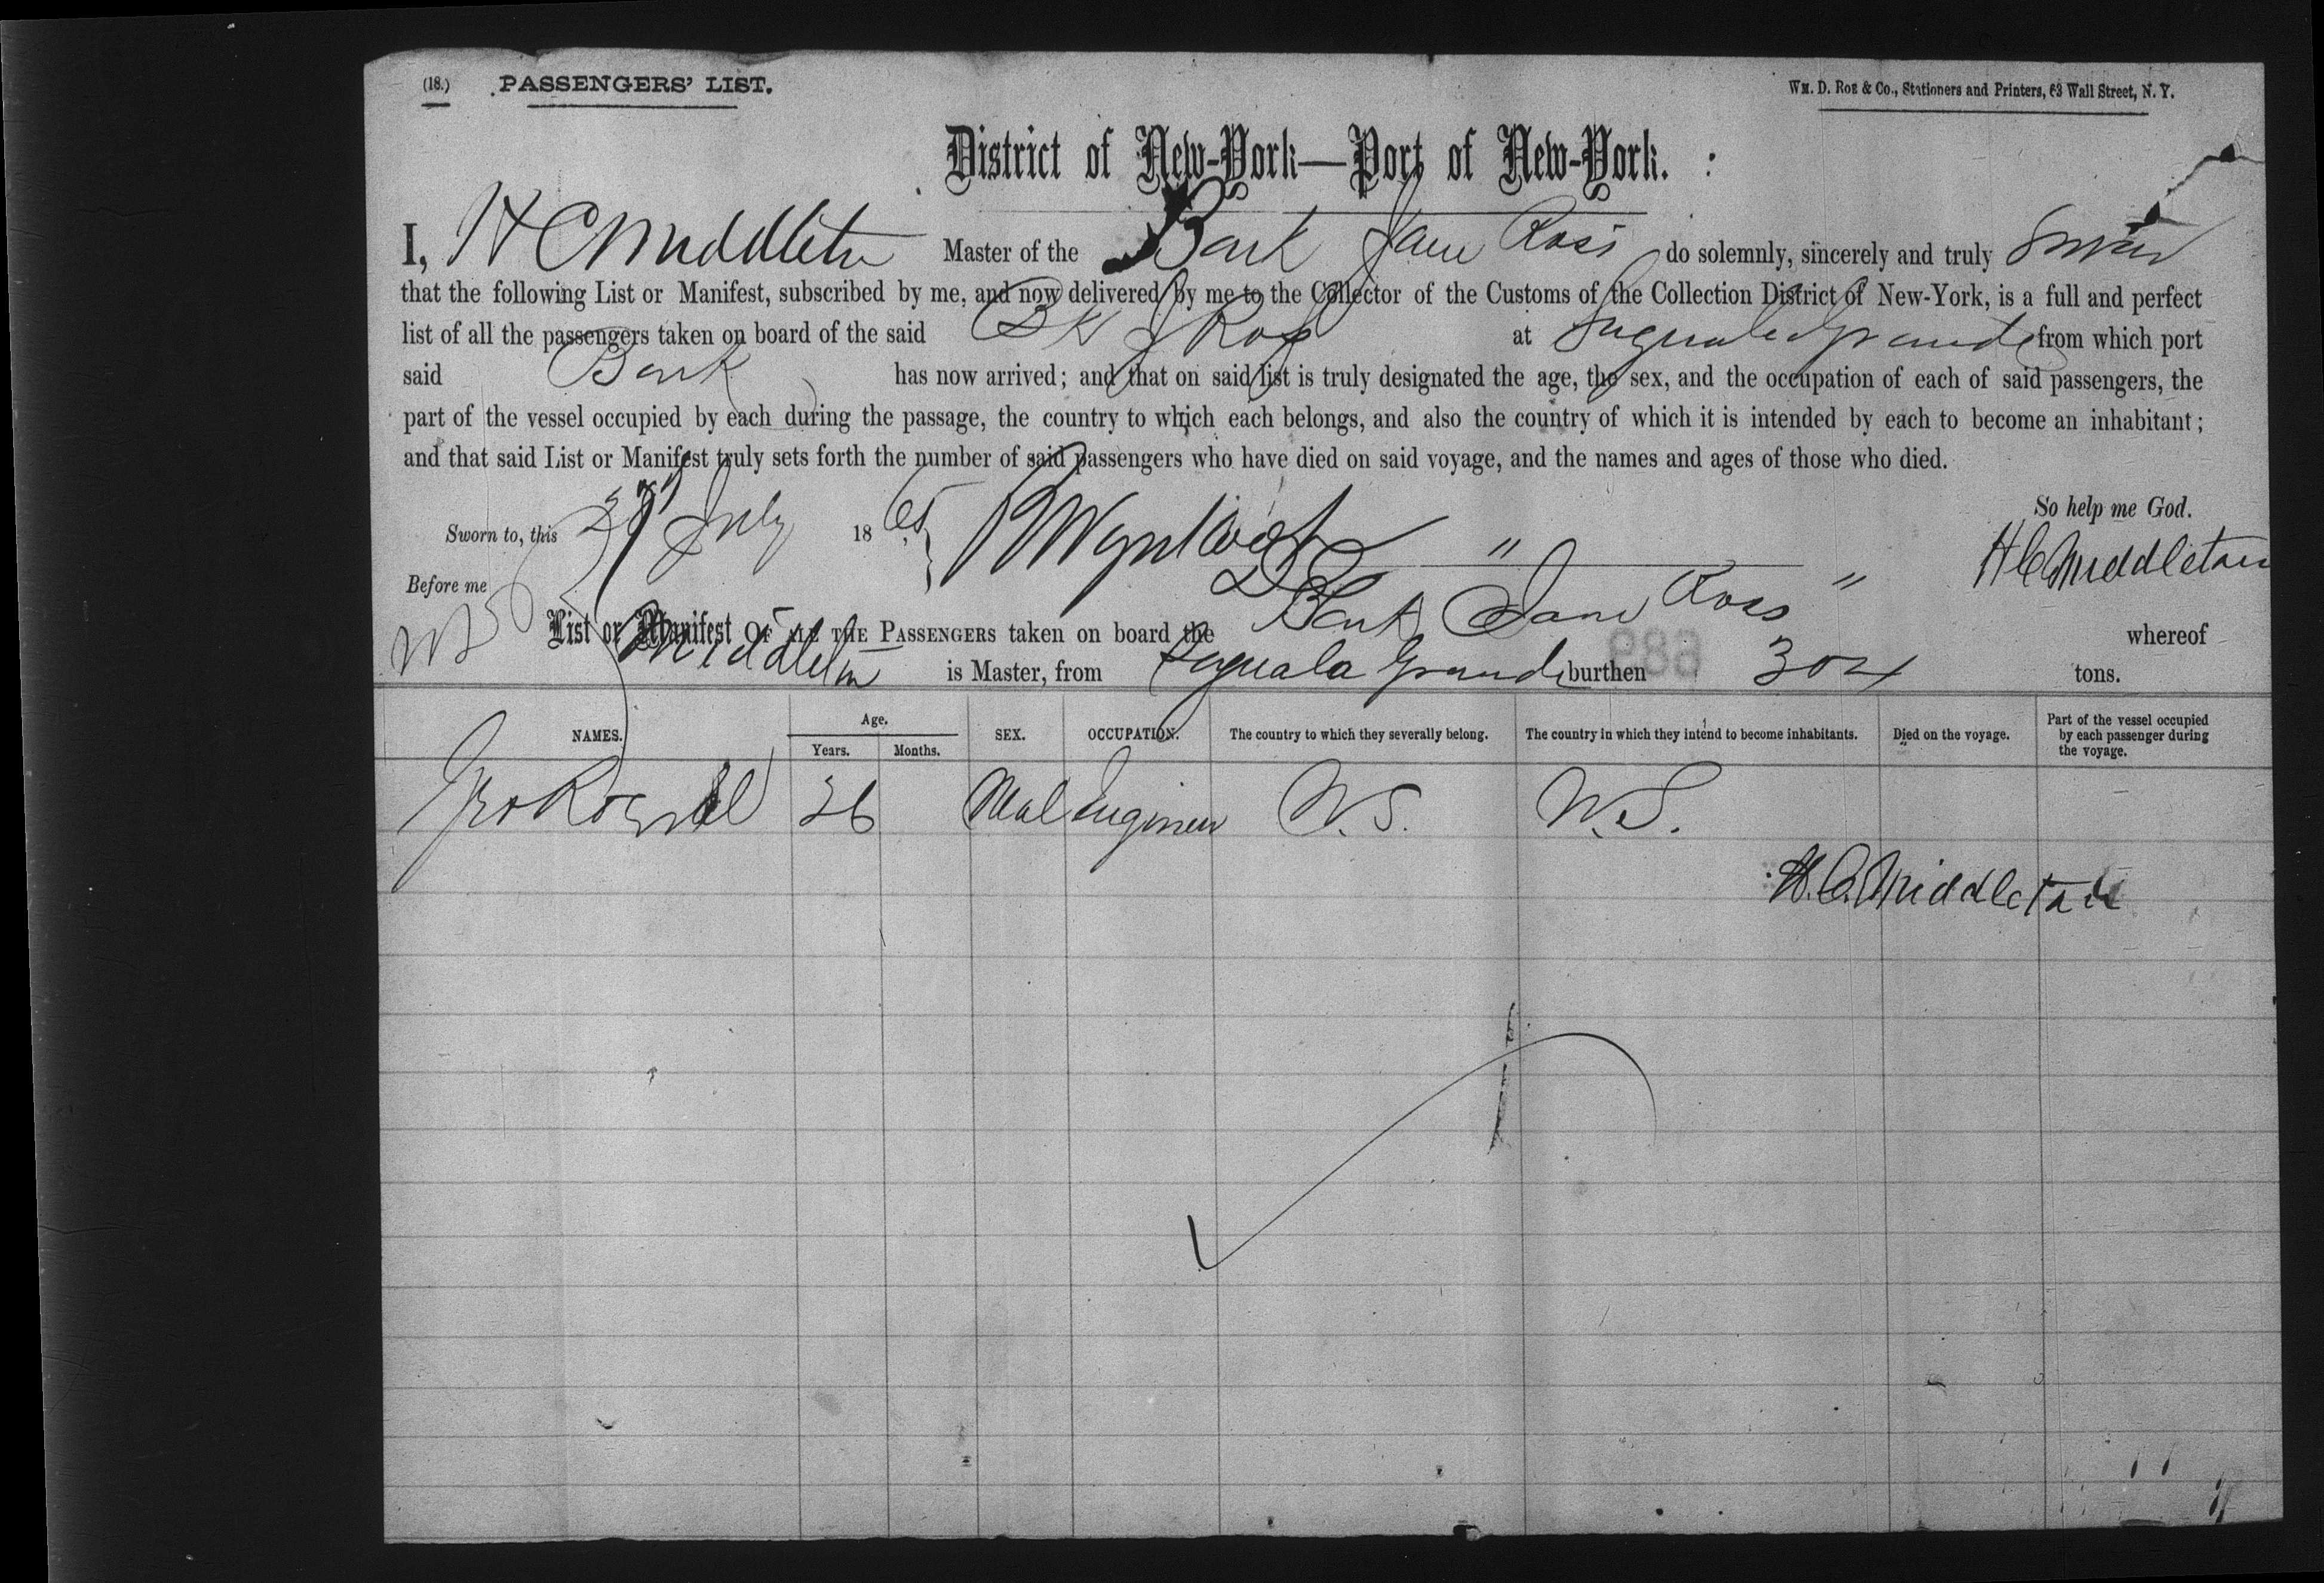 (18.) PASSENGERS' LIST. Wm. D. Roe & Co., Stationers and Printers, 63 Wall Street, N. Y.
District of New-York—Port of New-York.
I, H C Middleton Master of the Bark Jane Ross do solemnly, sincerely and truly swear
that the following List or Manifest, subscribed by me, and now delivered by me to the Collector of the Customs of the Collection District of New-York, is a full and perfect
list of all the passengers taken on board of the said Bk J Ross at Saguala Grande from which port
said Bark has now arrived; and that on said list is truly designated the age, the sex, and the occupation of each of said passengers, the
part of the vessel occupied by each during the passage, the country to which each belongs, and also the country of which it is intended by each to become an inhabitant;
and that said List or Manifest truly sets forth the number of said passengers who have died on said voyage, and the names and ages of those who died.
So help me God.
Sworn to, this July 1865
H C Middleton
Before me
List or Manifest OF ALL THE PASSENGERS taken on board the Bark Jane Ross whereof
Middleton is Master, from Saguala Grande burthen 304 tons.
689
NAMES. Age. Years. Months. SEX. OCCUPATION. The country to which they severally belong. The country in which they intend to become inhabitants. Died on the voyage. Part of the vessel occupied by each passenger during the voyage.
36 Mal Engineer U.S. U.S.
H. C. Middleton